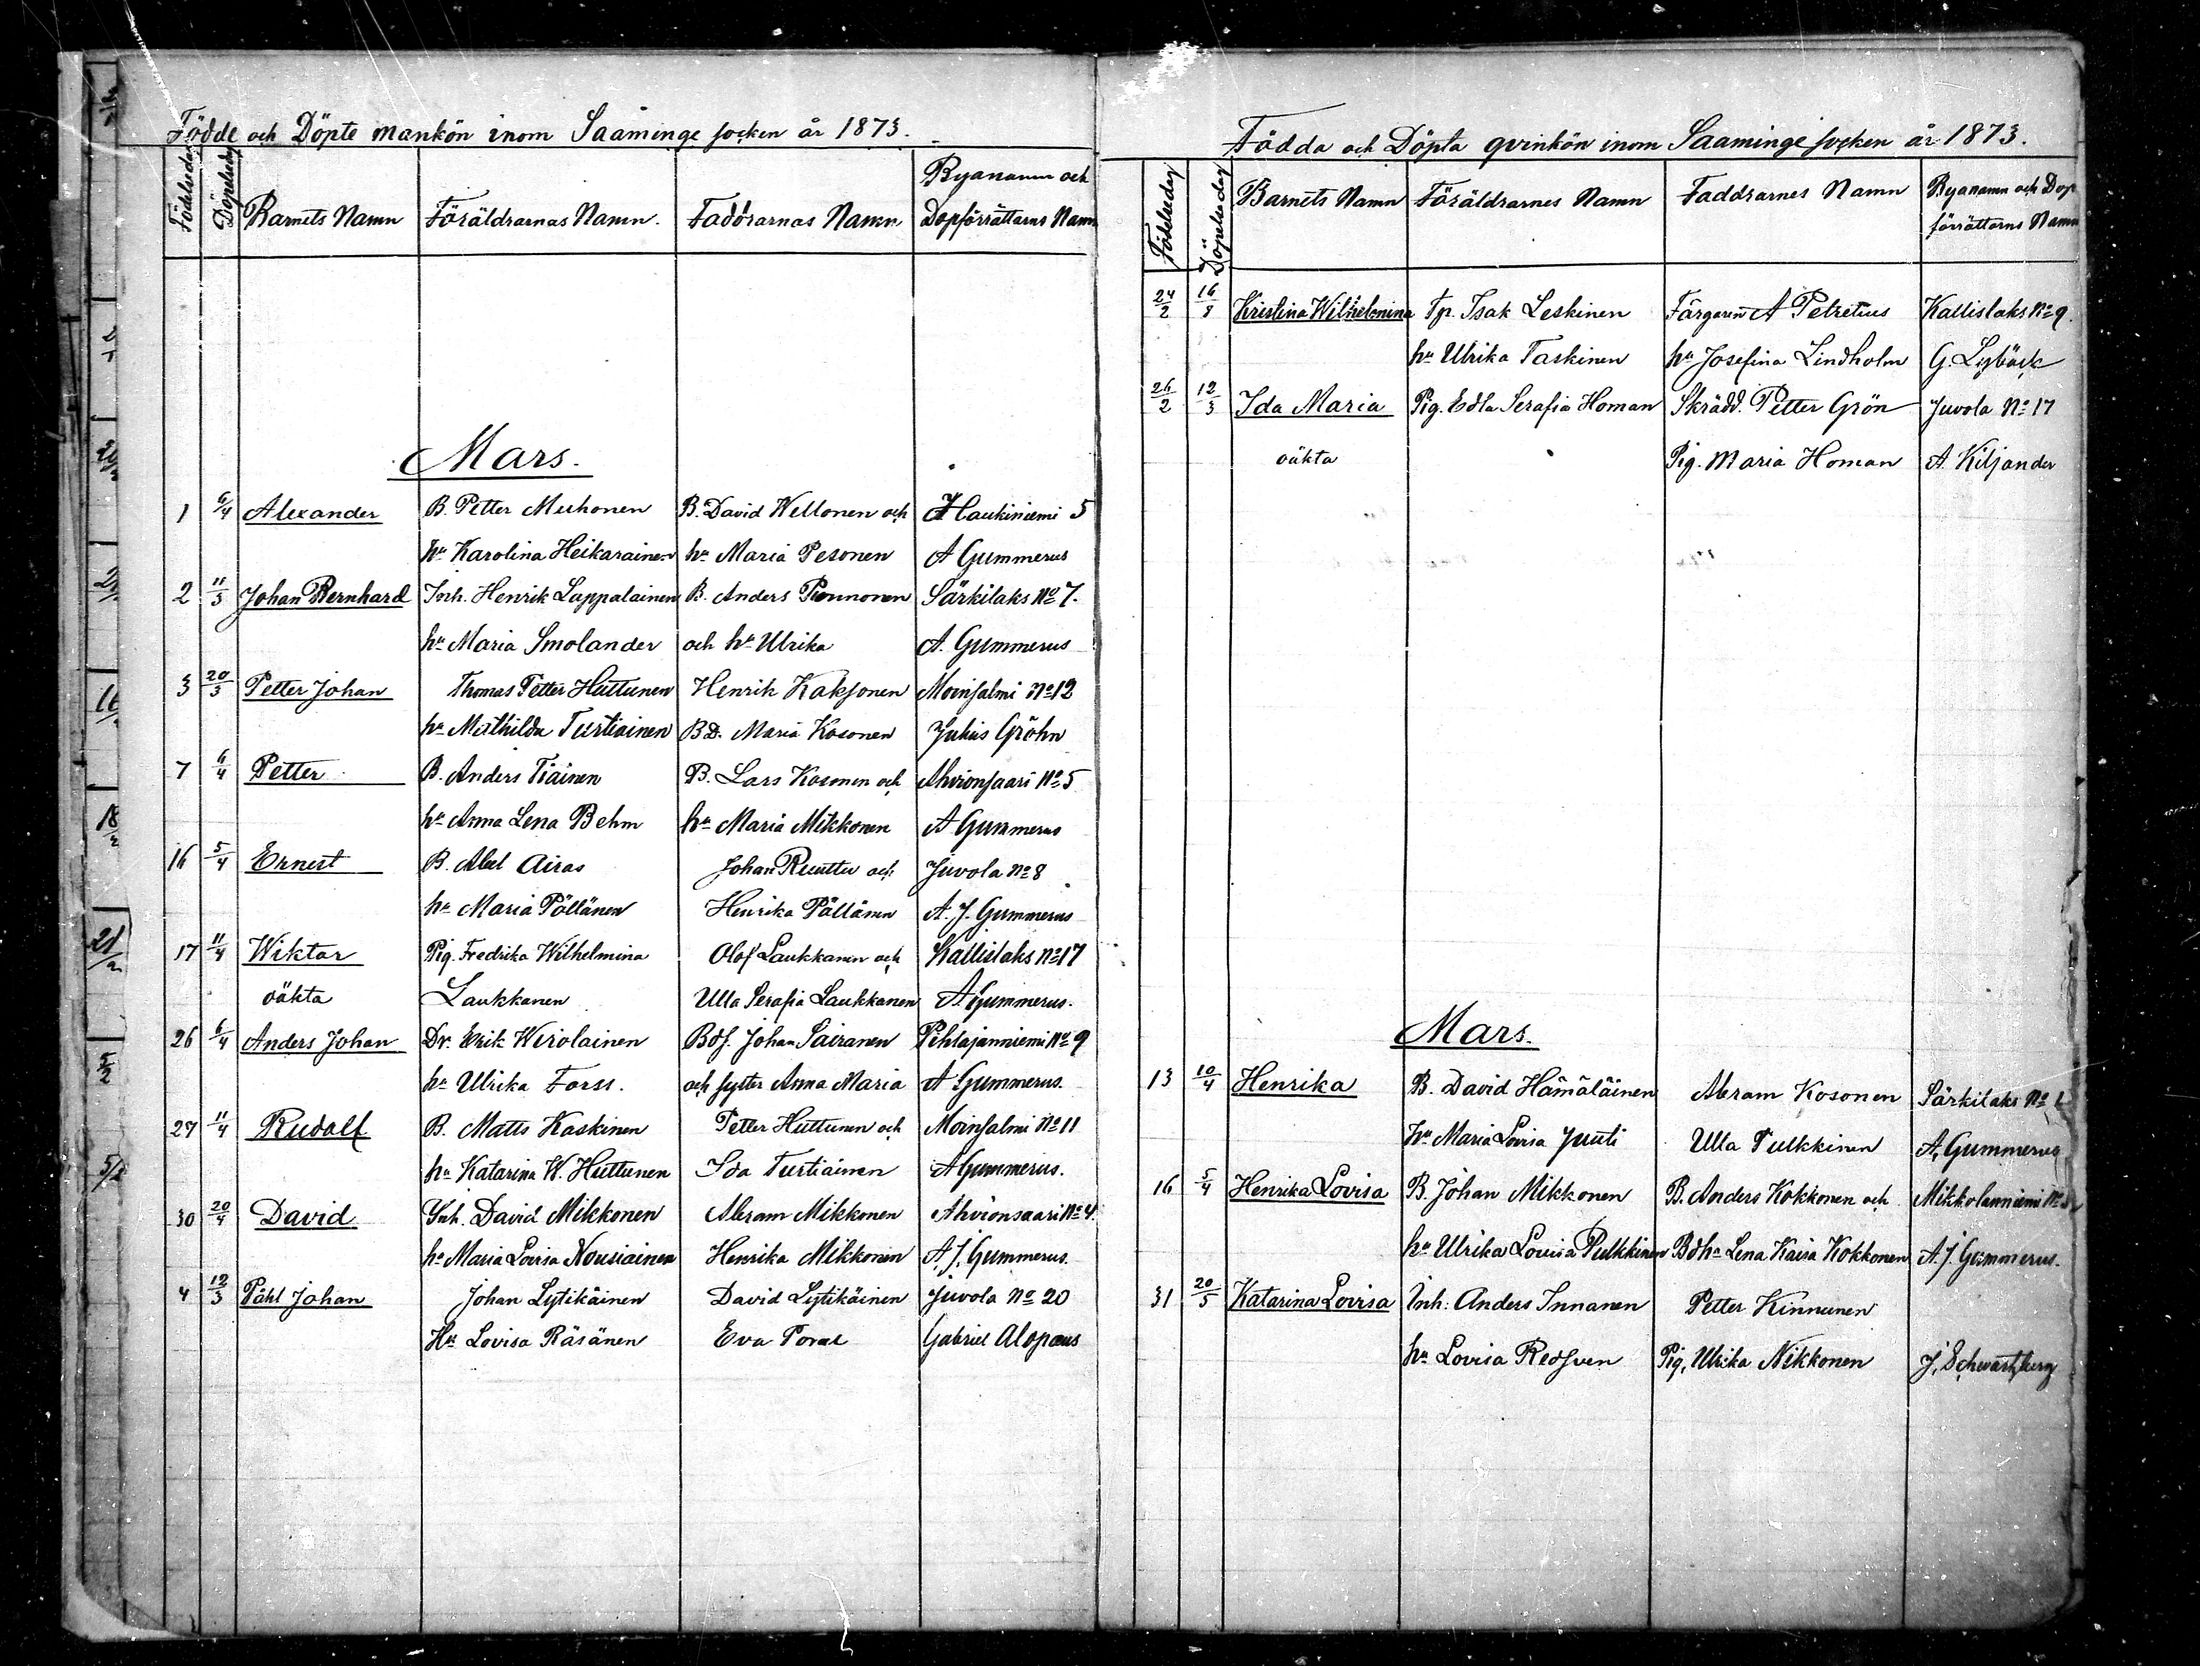 Födde och Döpte mankön inom Saaminge socken år 1873.
Födelsedag Döpelsedag Barnets Namn Föräldrarnas Namn. Faddrarnas Namn Byanamn och Dopförrättarns Namn
Mars.
1 6/4 Alexander B. Petter Muhonen B. David Wellonen och Haukiniemi 5
hu Karolina Heikarainen hu Maria Pesonen A Gummerus
2 11/3 Johan Bernhard Inh. Henrik Lappalainen B. Anders Särkilaks No 7.
hu Maria Smolander och hu Ulrika A. Gummerus
3 20/3 Petter Johan Thomas Petter Huttunen Henrik Kaksonen Moinsalmi No 12
hu Mathilda Turtiainen BD. Maria Kosonen Julius Gröhn
7 6/4 Petter B. Anders Tiainen B. Lars Kosonen och Ahvionsaari No 5
hu Anna Lena Behm hu Maria Mikkonen A Gummerus
16 5/4 Ernest B. Abel Airas Johan och Juvola No 8
hu Maria Pöllänen Henrika Pöllänen A. J. Gummerus
17 11/4 Wiktor Pig. Fredrika Wilhelmina Olof Laukkanen och Kallislaks No 17
oäkta Laukkanen Ulla Serafia Laukkanen A Gummerus.
26 6/4 Anders Johan Dr. Erik Wirolainen Bds. Johan Sairanen Pihlajanniemi No 9
hu Ulrika Forss. och syster Anna Maria A Gummerus.
27 11/4 Rudolf B. Matts Kaskinen Petter Huttunen och Moinsalmi No 11
hu Katarina W. Huttunen Ida Turtiainen A Gummerus.
30 20/4 David Inh. David Mikkonen Abram Mikkonen Ahvionsaari No 4.
hu Maria Lovisa Nousiainen Henrika Mikkonen A. J. Gummerus.
4 12/3 Påhl Johan Johan Lytikäinen David Lytikäinen Juvola No 20
Hu Lovisa Räsänen Eva Gabriel Alopæus
Födda och Döpta qvinkön inom Saaminge socken år 1873.
Födelsedag Döpelsedag Barnets Namn Föräldrarnes Namn Faddrarnes Namn Byanamn och Dopförrättarns Namn
24/2 16/8 Kristina Wilhelmina Tp. Isak Leskinen Färgaren A Petrelius Kallislaks No 9.
hu Ulrika Taskinen hu Josefina Lindholm G. Lybäck
26/2 12/3 Ida Maria Pig. Edla Serafia Homan Skrädd. Petter Grön Juvola No 17
oäkta Pig. Maria Homan A. Kiljander
Mars.
13 10/4 Henrika B. David Hämäläinen Abram Kosonen Särkilaks No
hu Maria Lovisa Juuti Ulla Pulkkinen A. Gummerus
16 5/4 Henrika Lovisa B. Johan Mikkonen B. Anders Kokkonen och Mikkolanniemi No
hu Ulrika Lovisa Pulkkinen Bdhu Lena Kaisa Kokkonen A. J. Gummerus.
31 20/5 Katarina Lovisa Inh: Anders Innanen Petter Kinnunen
hu Lovisa Redsven Pig. Ulrika Nikkonen J. Schwartzberg